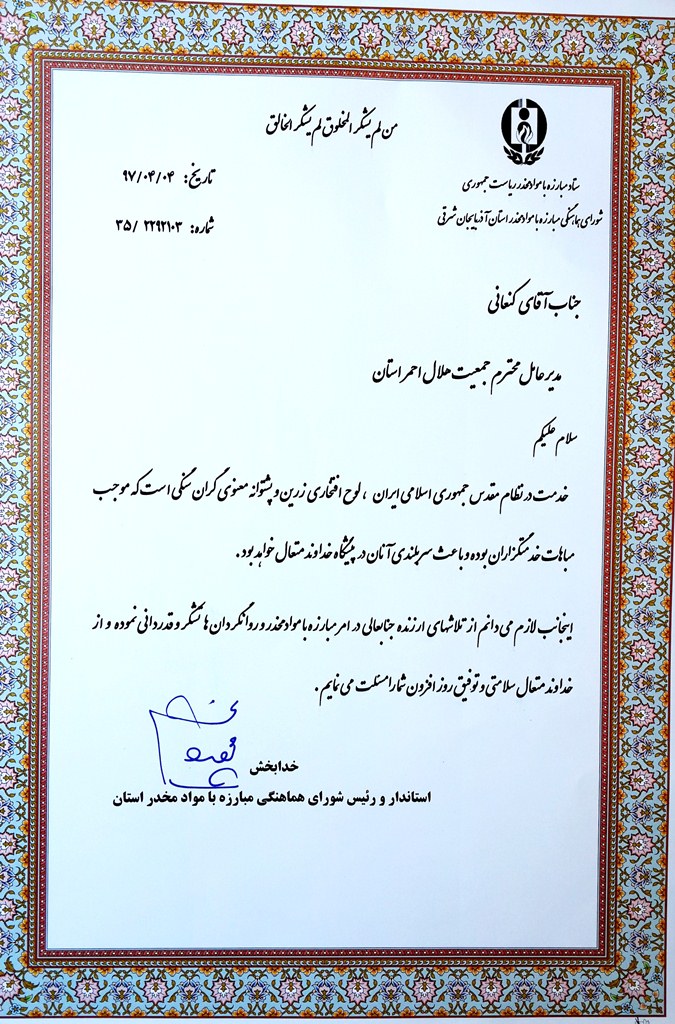 من لم یشکر المخلوق لم یشکر الخالق
ستاد مبارزه با مواد مخدر ریاست جمهوری
شورای هماهنگی مبارزه با مواد مخدر استان آذربایجان شرقی
تاریخ: ۹۷/۰۴/۰۴
شماره: ۳۵/ ۲۲۹۲۱۰۳
جناب آقای کنعانی
مدیر عامل محترم جمعیت هلال احمر استان
سلام علیکم
خدمت در نظام مقدس جمهوری اسلامی ایران ، لوح افتخاری زرین و پشتوانه معنوی گران سنگی است که موجب
مباهات خدمتگزاران بوده و باعث سربلندی آنان در پیشگاه خداوند متعال خواهد بود.
اینجانب لازم می دانم از تلاشهای ارزنده جنابعالی در امر مبارزه با مواد مخدر و روانگردان ها تشکر و قدردانی نموده و از
خداوند متعال سلامتی و توفیق روز افزون شما را مسئلت می نمایم.
خدابخش
استاندار و رئیس شورای هماهنگی مبارزه با مواد مخدر استان